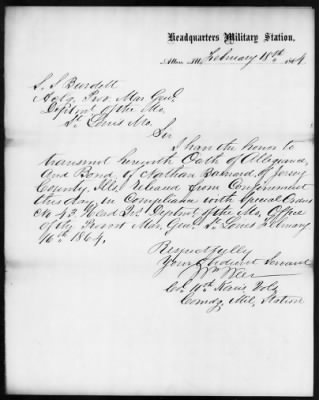 Headquarters Military Station,
Alton, Ill., February 18th 1864
S. S. Burdett
Actg Prov. Mar. Genl.
Deptmt of the Mo.
St. Louis Mo.
Sir
I have the honor to
transmit herewith Oath of Allegiance
and Bond, of Nathan Barnard, of Jersey
County, Ills. Released from Confinement
this day, in Compliance with Special Orders
No 43 Head Qrs Deptmt of the Mo, Office
of the Provost Mar. Genl. St. Louis February
16th 1864.
Respectfully
Your Obedient Servant
Wm Weer
Col. 10th Kansas Vols
Comdg. Mil. Station